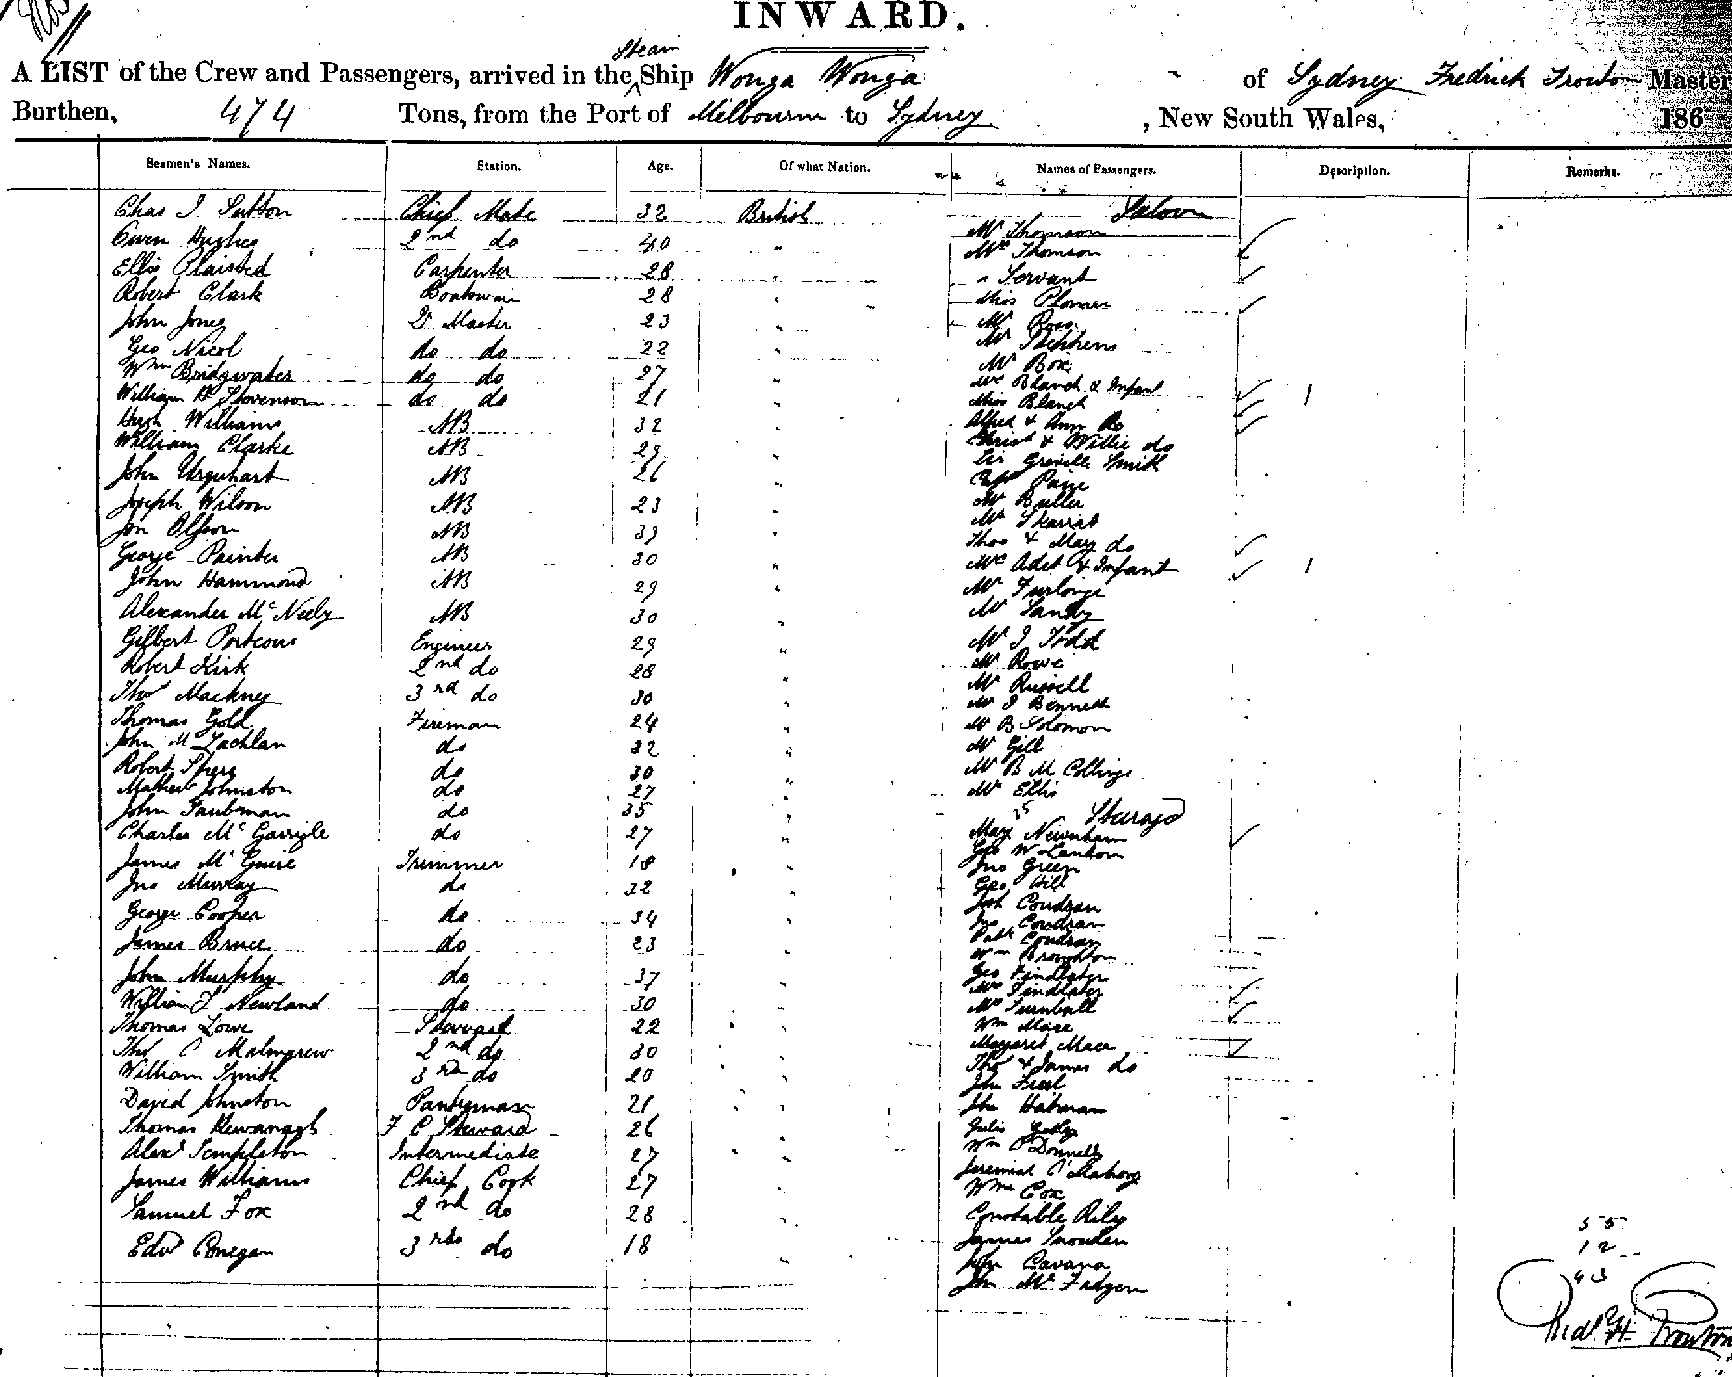 INWARD.
Steam
A LIST of the Crew and Passengers, arrived in the Ship Wonga Wonga of Sydney Fredrick Trouton Master
Burthen, 474 Tons, from the Port of Melbourne to Sydney, New South Wales, 186
Seamen's Names. Station. Age. Of what Nation. Names of Passengers. Description. Remarks.
Chas J. Sutton Chief Mate 32 British Saloon
Mr Thomson
Owen Hughes 2nd do 40 "
Mrs Thomson
Ellis Plaisted Carpenter 28 "
" Servant
Robert Clark Boatswain 28 "
Miss Plomer
John Jones Qr Master 23 "
Mr Ross
Geo Nicol do do 22 "
Mr Stephens
Mr Box
Wm Bridgwater do do 27 "
Mrs Blanch & Infant 1
William H Stevenson do do 21 "
Miss Blanch
Hugh Williams AB 32 "
Alfred & Ann do
William Clarke AB 29 "
Christ & Willie do
Sir Greville Smith
John Urquhart AB 26 "
Capt Page
Joseph Wilson AB 23 "
Mr Buller
Mrs Skarratt
Jon Olsson AB 39 "
Thos & Mary do
George Painter AB 30 "
Mrs Adet & Infant 1
John Hammond AB 29 "
Mr Furlonge
Alexander McNeely AB 30 "
Mr Sandy
Gilbert Porteous Engineer 29 "
Mr J Todd
Robert Kirk 2nd do 28 "
Mr Rowe
Thos Mackney 3rd do 30 "
Mr Russell
Mr J Bennett
Thomas Gold Fireman 24 "
Mr B Solomon
John McLachlan do 32 "
Mr Gill
Robert Spers do 30 "
Mr B M Collings
Mathew Johnston do 27 "
Mr Ellis
John Taubman do 35 "
25 Steerage
Charles McGarrigle do 27 "
Mary Newnham
Geo W Lanhom
James McGuire Trimmer 18 "
Jno Green
Jno Murray do 32 "
Geo Hill
George Cooper do 34 "
Jno Condran
Patk Condran
James Bruce do 23 "
Wm Broughton
John Murphy do 37 "
Geo Findlater
Mrs Findlater
William J Newland do 30 "
Mr Turnbull
Thomas Lowe Steward 22 "
Wm Mace
Thos C Malmgrew 2nd do 30 "
Margaret Mace
William Smith 3rd do 20 "
Thos & James do
David Johnston Pantryman 21 "
Thomas Kewanagh F C Steward 26 "
Alexr Templeton Intermediate 27 "
Wm O'Donnell
James Williams Chief Cook 27 "
Jeremiah O'Mahony
Wm Cox
Samuel Fox 2nd do 28 "
Constable Rily
Edwd Conegan 3rd do 18 "
James Snowden
John Cavana
Jon McFadzen
55
12
43
Fredk H. Trouton